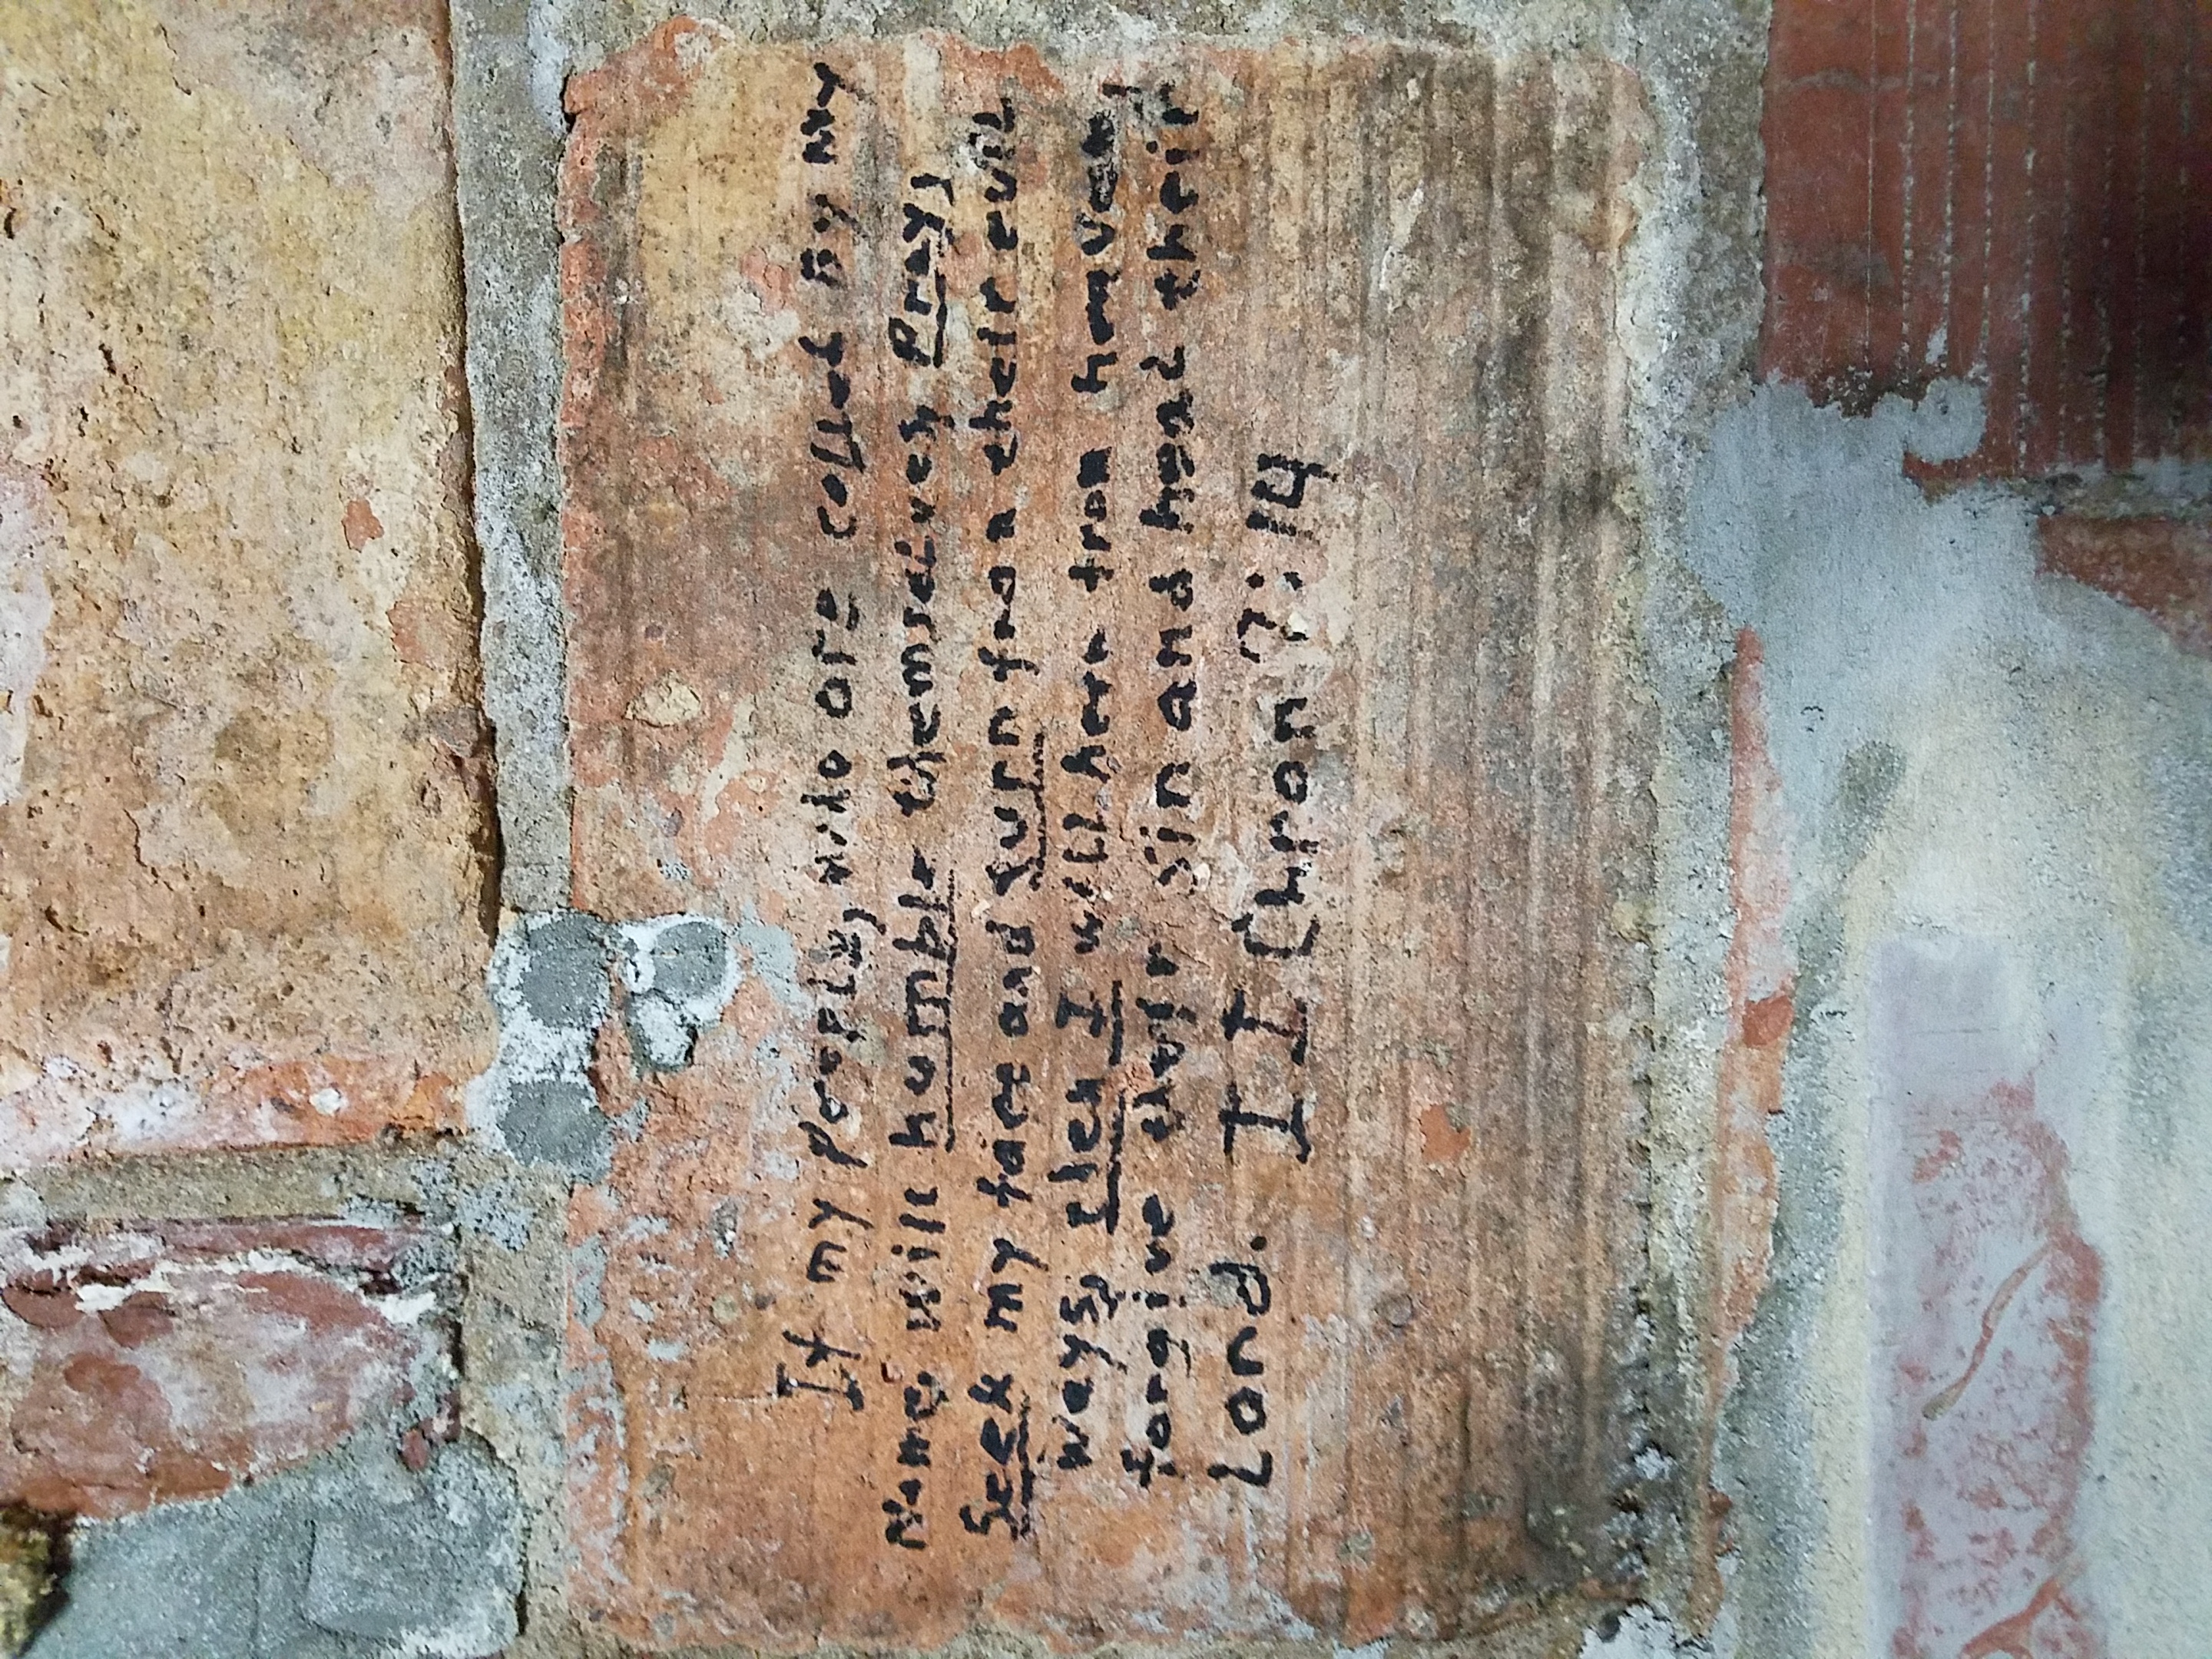 If my people, who are called by my
Name, will humble themselves, Pray,
Seek my face and turn from their evil
ways, then I will hear from heaven,
forgive their sin and heal their
Land. II Chron 7:14